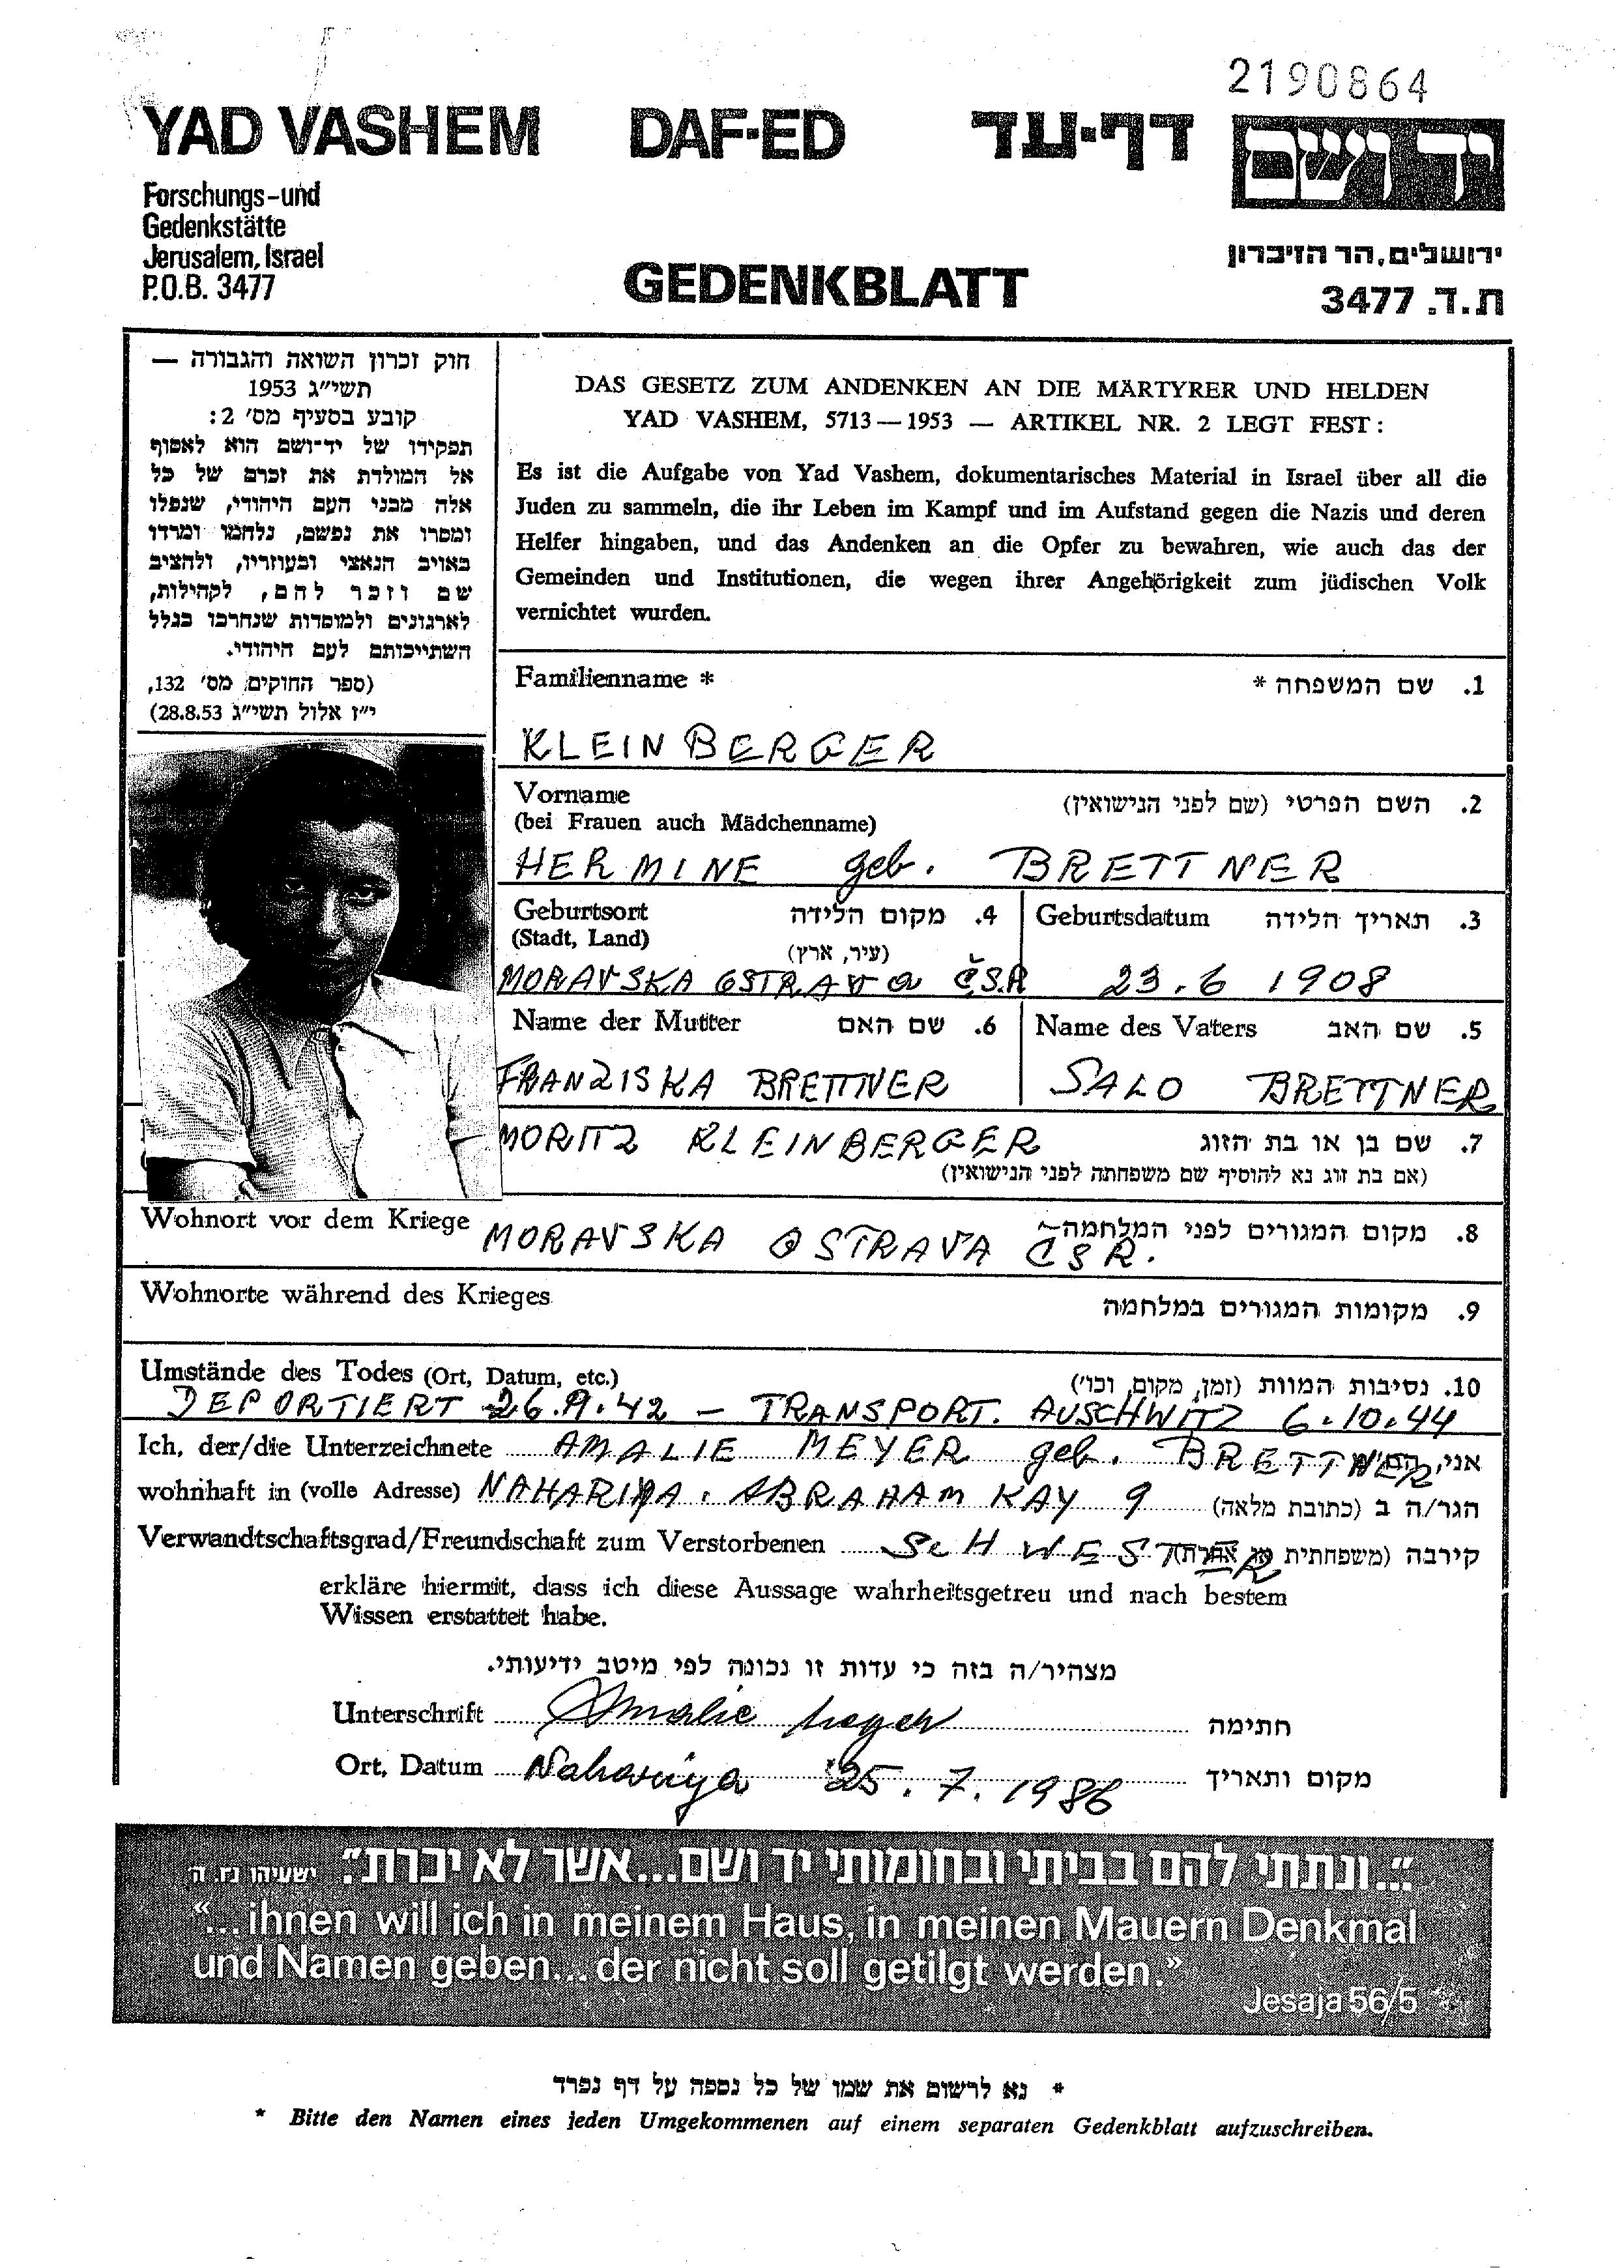 2190864
YAD VASHEM DAF-ED דף-עד
ידושם
Forschungs-und
Gedenkstätte
Jerusalem, Israel
P.O.B. 3477
GEDENKBLATT
ירושלים, הר הזיכרון
ת.ד. 3477
חוק זכרון השואה והגבורה —
תשי״ג 1953
קובע בסעיף מס׳ 2:
תפקידו של יד־ושם הוא לאסוף
אל המולדת את זכרם של כל
אלה מבני העם היהודי, שנפלו
ומסרו את נפשם, נלחמו ומרדו
באויב הנאצי ובעוזריו, ולהציב
שם וזכר להם, לקהילות,
לארגונים ולמוסדות שנחרבו בגלל
השתייכותם לעם היהודי.
(ספר החוקים מס׳ 132,
י״ז אלול תשי״ג 28.8.53)
DAS GESETZ ZUM ANDENKEN AN DIE MÄRTYRER UND HELDEN
YAD VASHEM, 5713—1953 — ARTIKEL NR. 2 LEGT FEST:
Es ist die Aufgabe von Yad Vashem, dokumentarisches Material in Israel über all die
Juden zu sammeln, die ihr Leben im Kampf und im Aufstand gegen die Nazis und deren
Helfer hingaben, und das Andenken an die Opfer zu bewahren, wie auch das der
Gemeinden und Institutionen, die wegen ihrer Angehörigkeit zum jüdischen Volk
vernichtet wurden.
Familienname * 1. שם המשפחה *
KLEINBERGER
Vorname 2. השם הפרטי (שם לפני הנישואין)
(bei Frauen auch Mädchenname)
HERMINE geb. BRETTNER
Geburtsort 4. מקום הלידה Geburtsdatum 3. תאריך הלידה
(Stadt, Land) (עיר, ארץ)
MORAVSKA OSTRAVA Č.S.R 23.6 1908
Name der Mutter 6. שם האם Name des Vaters 5. שם האב
FRANZISKA BRETTNER SALO BRETTNER
MORITZ KLEINBERGER 7. שם בן או בת הזוג
(אם בת זוג נא להוסיף שם משפחתה לפני הנישואין)
Wohnort vor dem Kriege MORAVSKA OSTRAVA ČSR. 8. מקום המגורים לפני המלחמה
Wohnorte während des Krieges 9. מקומות המגורים במלחמה
Umstände des Todes (Ort, Datum, etc.) 10. נסיבות המוות (זמן, מקום, וכו׳)
DEPORTIERT 26.9.42 — TRANSPORT. AUSCHWITZ 6.10.44
Ich, der/die Unterzeichnete AMALIE MEYER geb. BRETTNER אני,
wohnhaft in (volle Adresse) NAHARIYA. ABRAHAM KAY 9 הגר/ה ב (כתובת מלאה)
Verwandtschaftsgrad/Freundschaft zum Verstorbenen SCHWESTER קירבה (משפחתית או אחרת)
erkläre hiermit, dass ich diese Aussage wahrheitsgetreu und nach bestem
Wissen erstattet habe.
מצהיר/ה בזה כי עדות זו נכונה לפי מיטב ידיעותי.
Unterschrift Amalie Meyer חתימה
Ort, Datum Nahariya 25.7.1986 מקום ותאריך
״...ונתתי להם בביתי ובחומותי יד ושם...אשר לא יכרת״. ישעיהו נו, ה
“...ihnen will ich in meinem Haus, in meinen Mauern Denkmal
und Namen geben...der nicht soll getilgt werden.”
Jesaja 56/5
* נא לרשום את שמו של כל נספה על דף נפרד
* Bitte den Namen eines jeden Umgekommenen auf einem separaten Gedenkblatt aufzuschreiben.